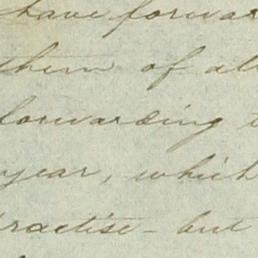 have forwar
them of al
forwarding
year, which
ractise - but